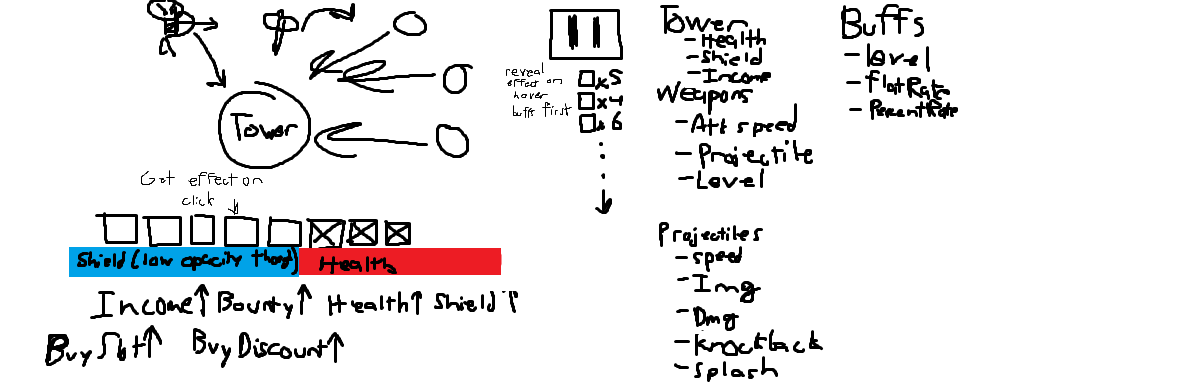 Tower
Got effect on
click
Shield (low opacity though)
Health
Income↑ Bounty↑ Health↑ Shield↑
Buy Slot↑ Buy Discount↑
reveal
effect on
hover
buffs first
x5
x4
x6
Tower
- Health
- Shield
- Income
Weapons
- Att speed
- Projectile
- Level
Projectiles
- speed
- Img
- Dmg
- knockback
- splash
Buffs
- level
- flatRate
- PercentRate